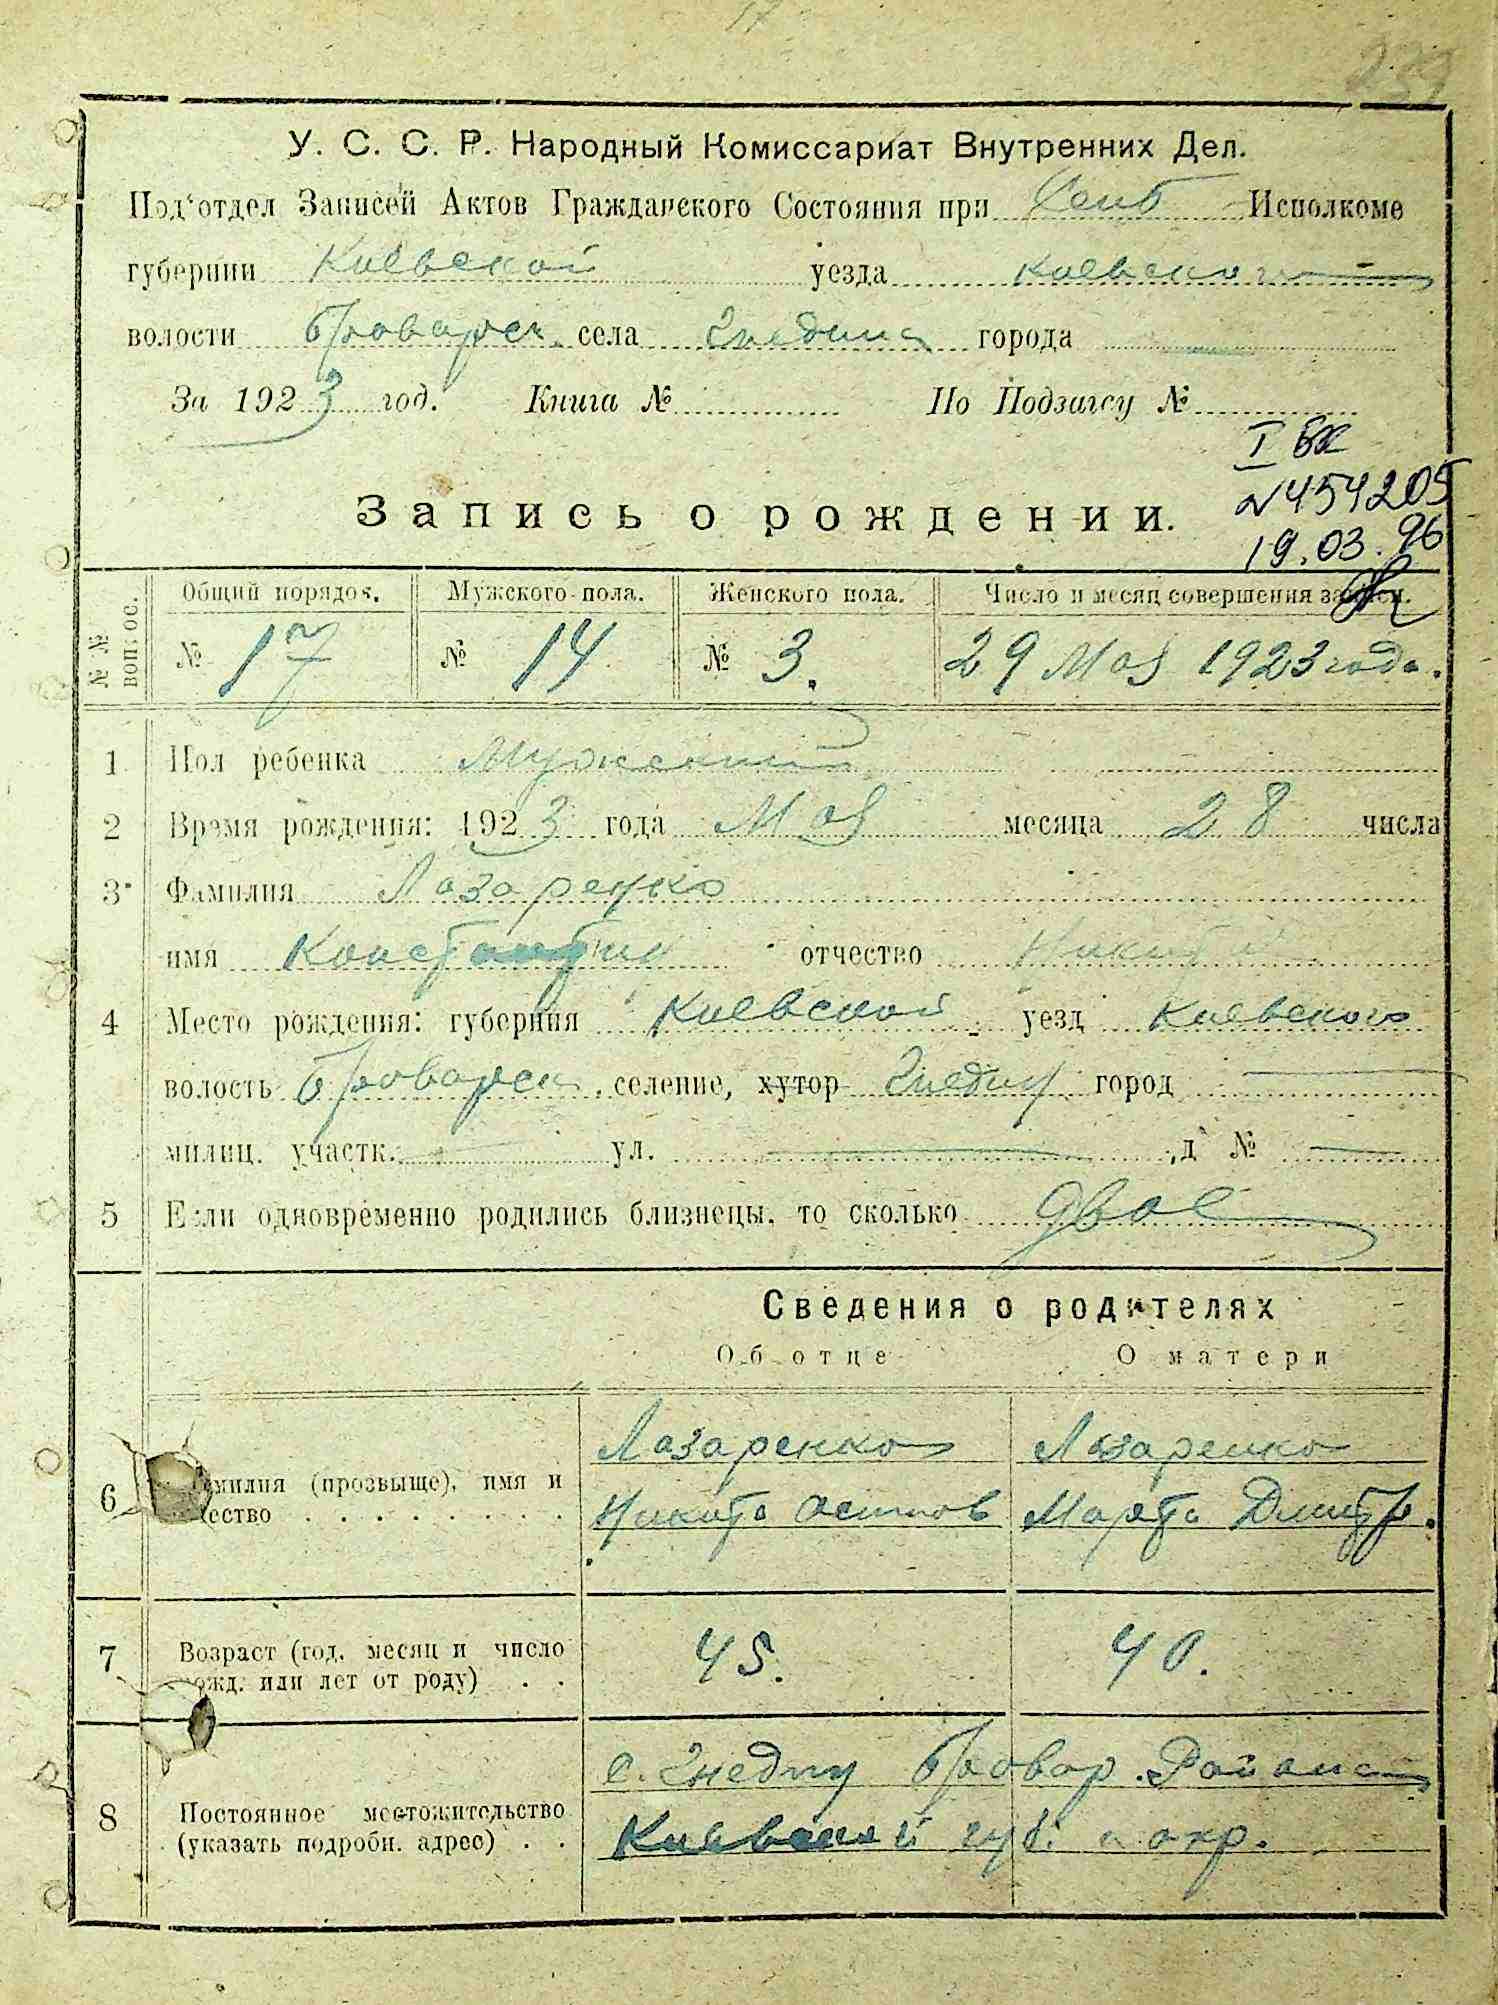 17
239
У. С. С. Р. Народный Комиссариат Внутренних Дел.
Под'отдел Записей Актов Гражданского Состояния при Исполкоме
губернии Киевской уезда Киевского
волости Броварск. села Гнедина города
За 1923 год. Книга № По Подзагсу №
I БК
N454205
19.03.96
Запись о рождении.
№ № вопрос. Общий порядок. Мужского пола. Женского пола. Число и месяц совершения записи.
№ 17 № 14 № 3. 29 Мая 1923 года.
1 Пол ребенка Мужеский
2 Время рождения: 1923 года Мая месяца 28 числа
3 Фамилия Лазаренко
имя Константин отчество Никит
4 Место рождения: губерния Киевской уезд Киевского
волость Броварск. селение, хутор Гнедин город
милиц. участк. ул. , д №
5 Если одновременно родились близнецы, то сколько двое
Сведения о родителях
Об отце О матери
Лазаренко Лазаренко
6 милия (прозвыще), имя и
ество Никита Осипов Марта Дмитр.
7 Возраст (год, месяц и число 45. 40.
ожд. или лет от роду)
с. Гнедин Бровар. Района
8 Постоянное местожительство
(указать подробн. адрес) Киевской губ. и окр.